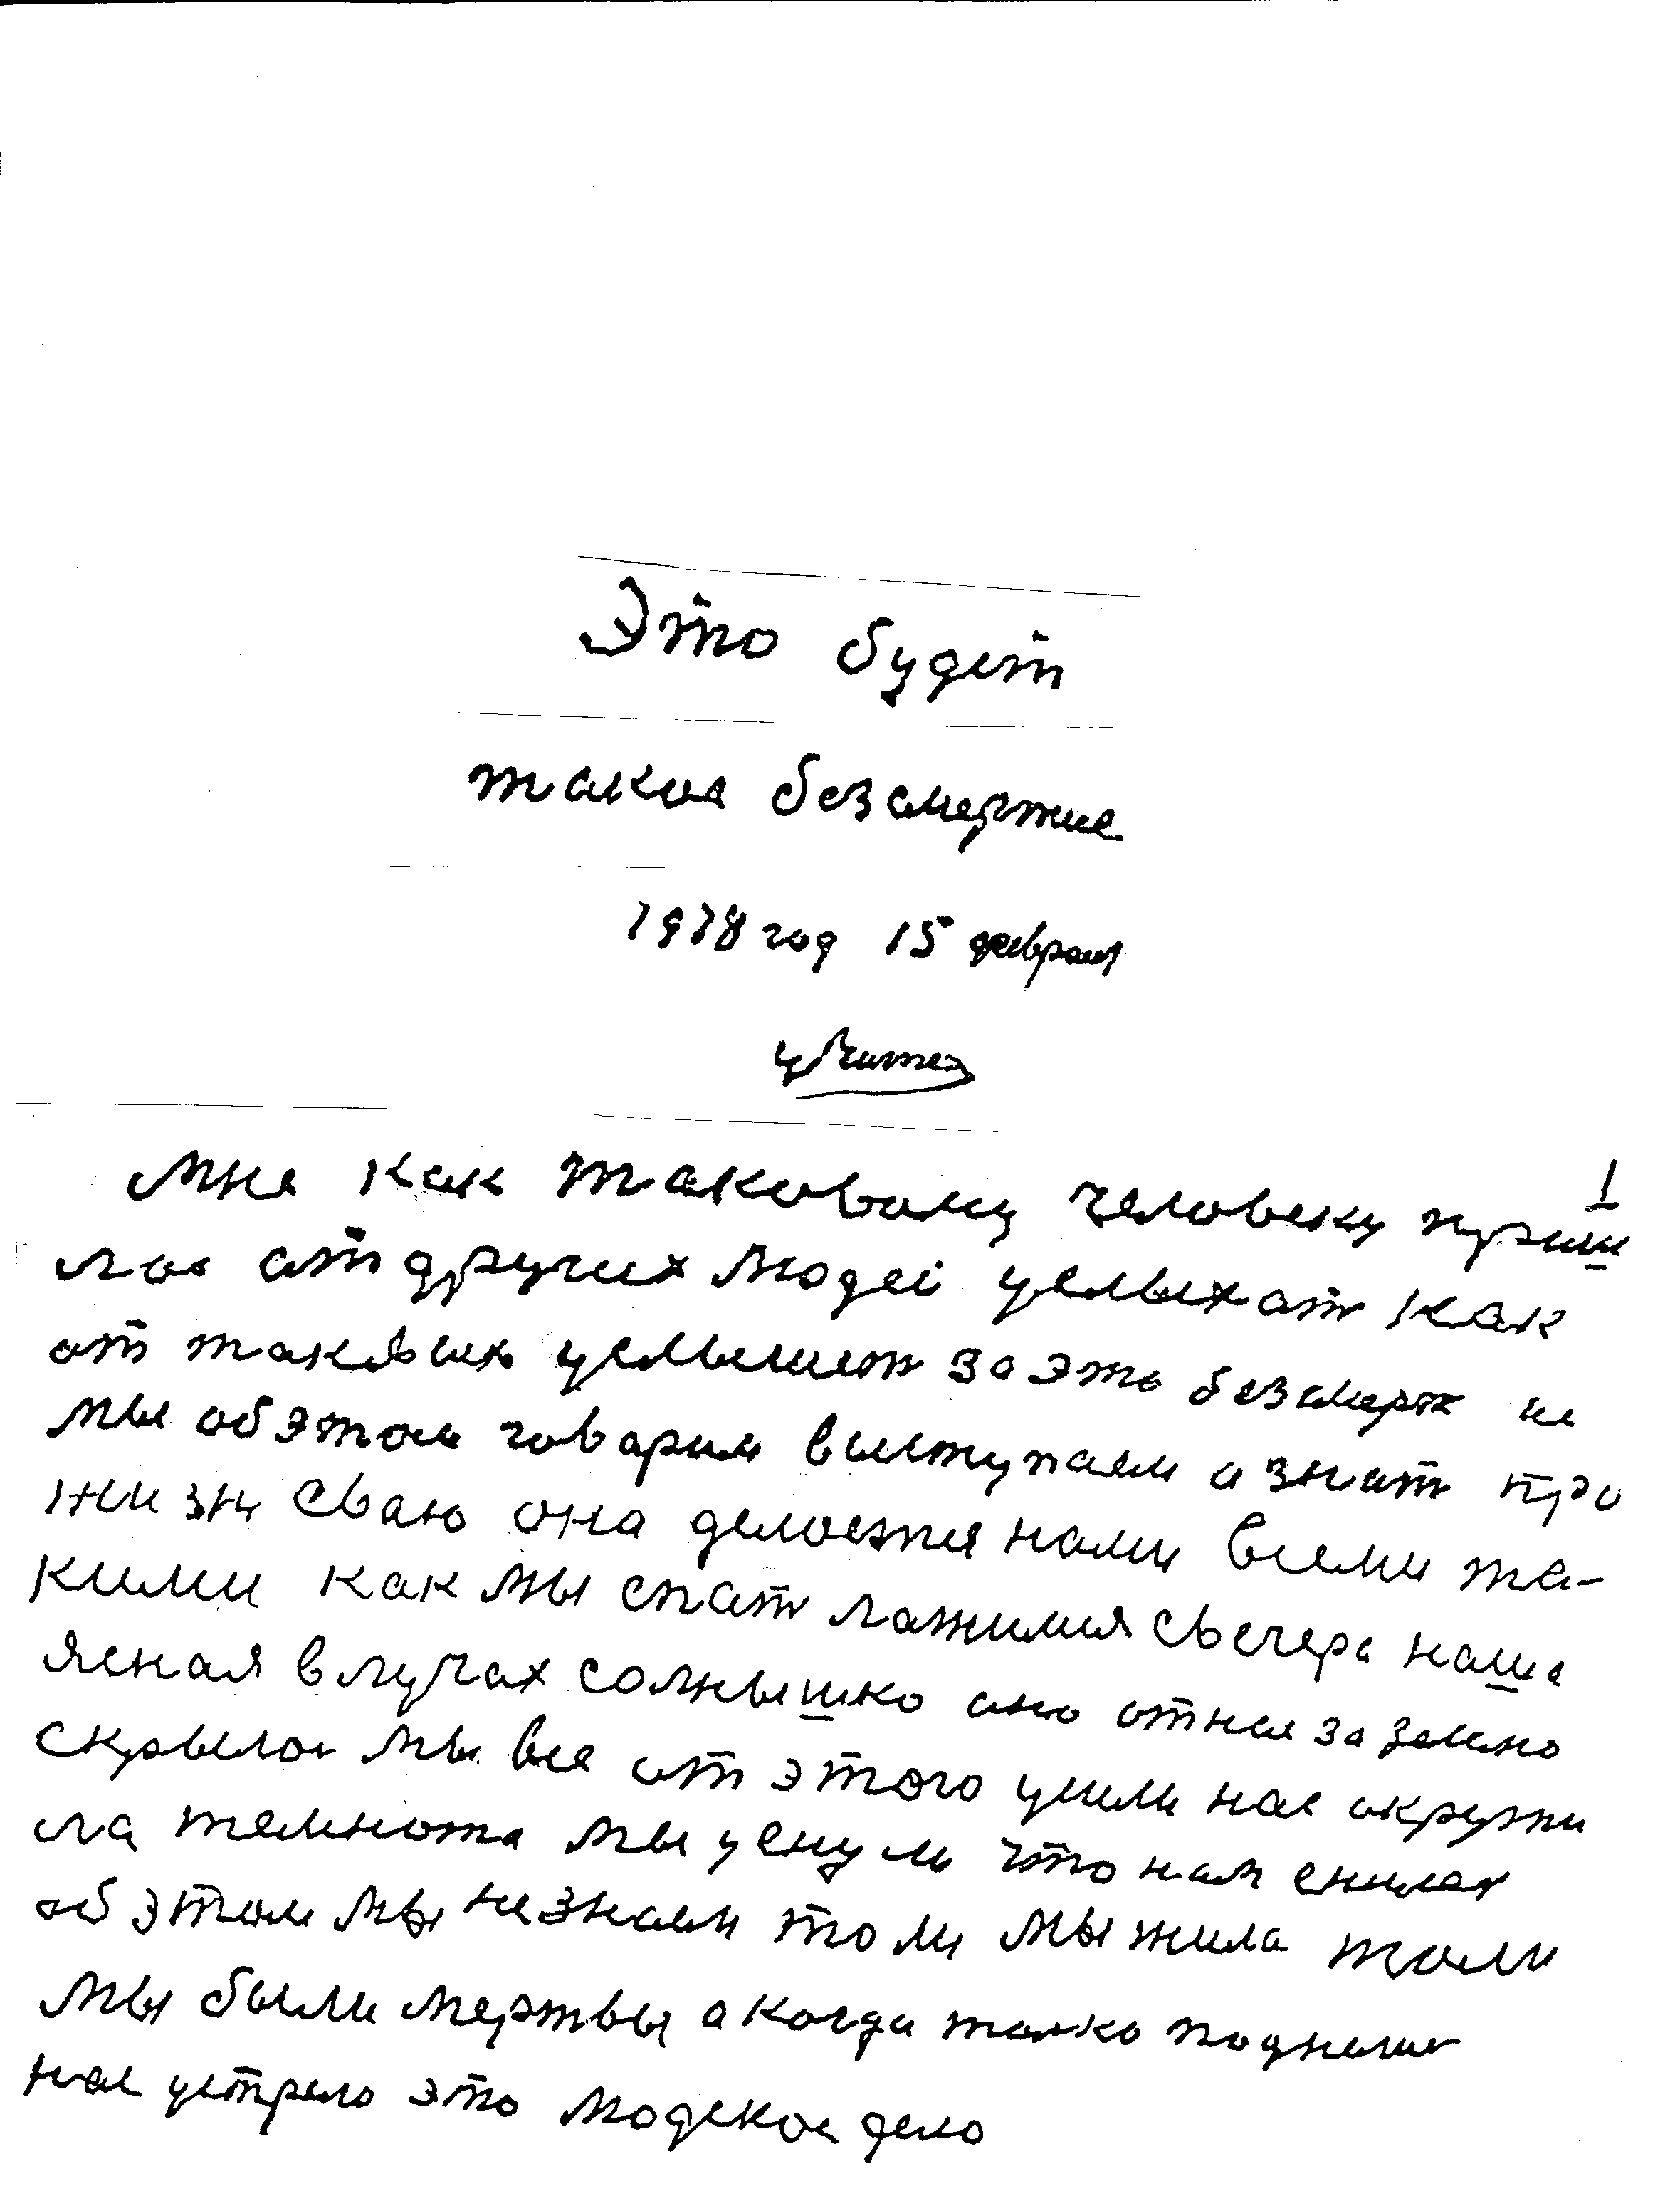 Это будет
такое безсмертие
1978 год 15 февраля
учитель
1
Мне как таковому человеку приш
лос от других людей услыхат как
от таковых услышит за это безсмерт не
мы об этом говорим выступаем а знат про
жизн сваю она делается нами всеми та-
кими как мы спат лажимся свечера наша
ясная в лучах солнышко оно от нас за землю
скрылос мы все от этого ушли нас окружи
ла темнота мы уснули что нам снилас
об этом мы не знаем то ли мы жила толи
мы были мертвы а когда толко поднели
нас устрело это людское дело